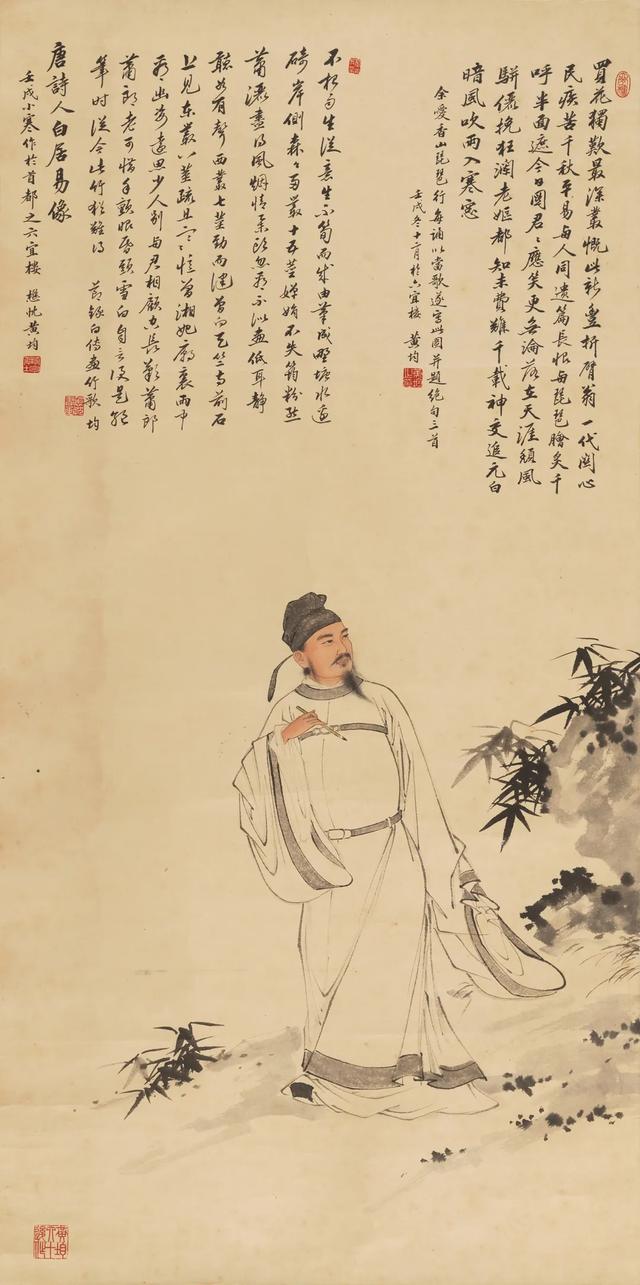 買花獨歎最深叢慨此新豐折臂翁一代関心
民疾苦千秋平易与人同遺篇長恨与琵琶膾炙千
呼半面遮今日圖君々應笑更名淪落在天涯頹風
駢儷挽狂瀾老嫗都知未費難千載神交追元白
暗風吹雨入寒窓
余愛香山琵琶行每誦以當歌遂寫此圖并題絶句三首
壬戌冬十二月於六宜樓 黄均
不根而生從意生不筍而成由筆成野塘水邊
碕岸側森々两叢十五莖嬋娟不失筠粉態
蕭灑盡得風烟情舉頭忽看不似畫低耳靜
聽如有聲西叢七莖勁而健曾向天竺寺前石
上見東叢八莖疏且寒憶曾湘妃廟裏雨中
看幽姿遠思少人別与君相顧空長歎蕭郎
蕭郎老可惜手顫眼昏頭雪白自言便是絕
筆时從今此竹猶難得 節錄白傅畫竹歌 均
唐詩人白居易像
壬戌小寒作於首都之六宜樓 懋忱黄均